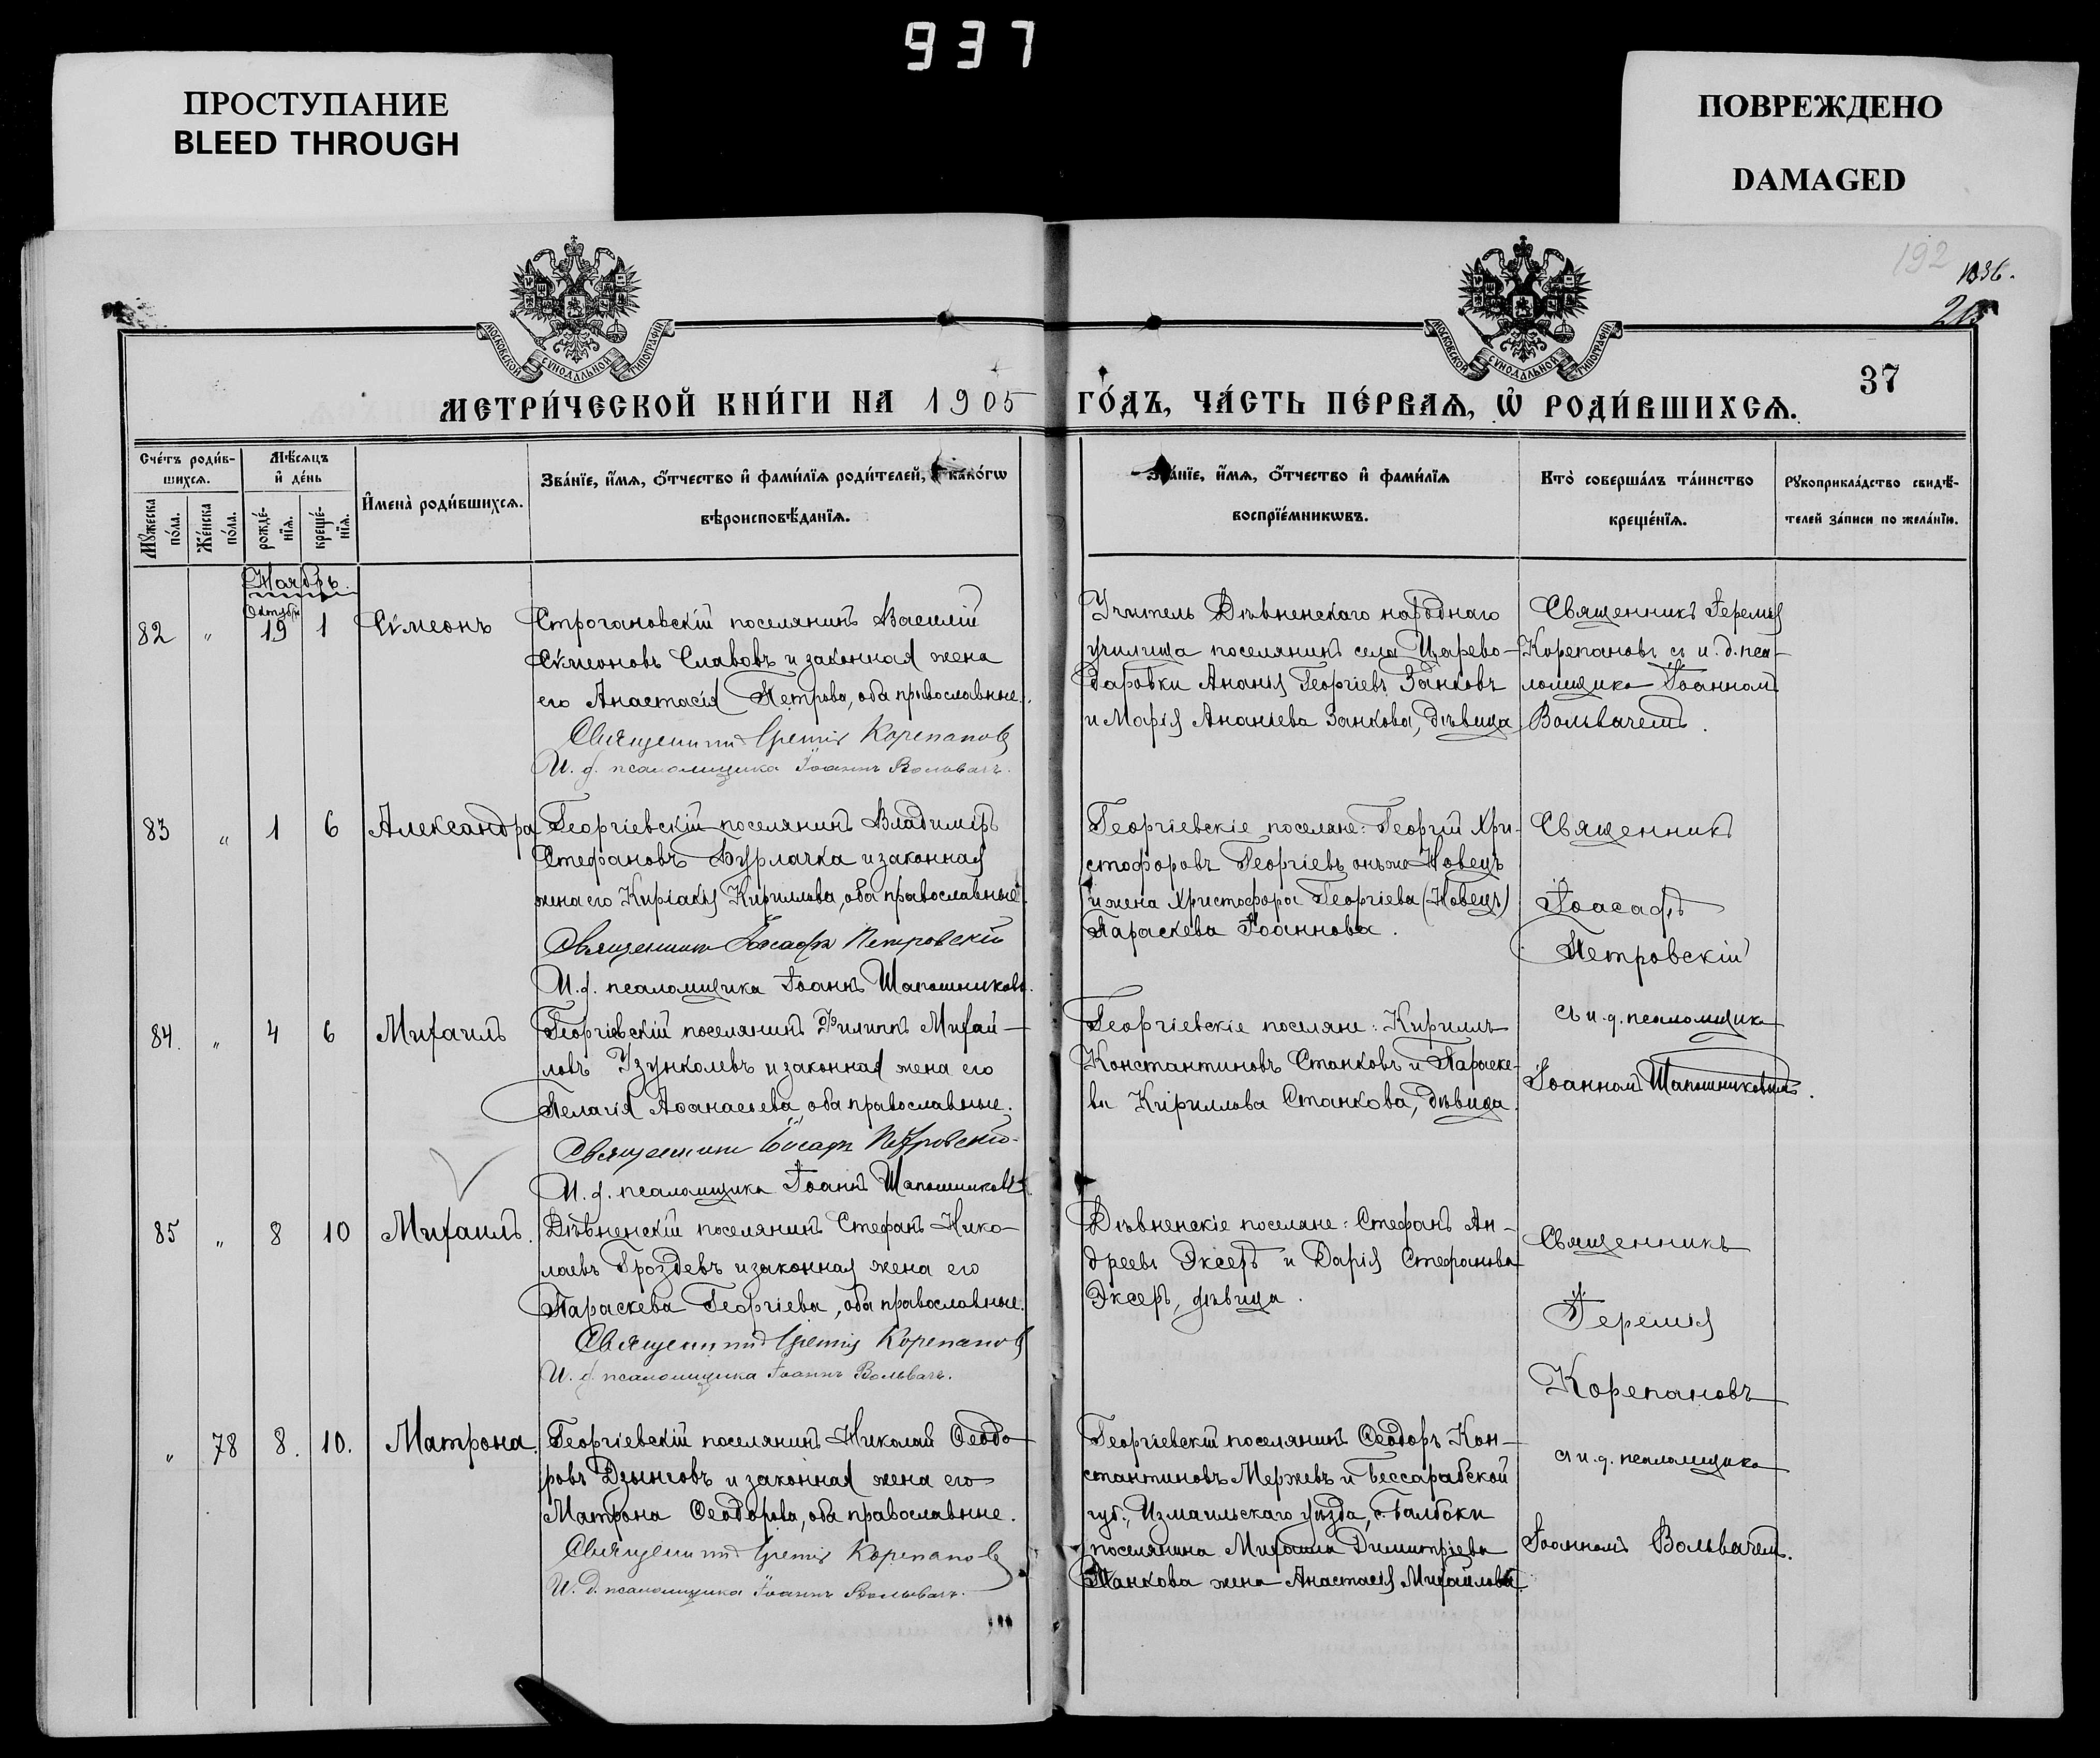 937
ПРОСТУПАНИЕ
BLEED THROUGH
ПОВРЕЖДЕНО
DAMAGED
192
1036.
МОСКОВСКОЙ СУНОДАЛЬНОЙ ТИПОГРАФІИ
МОСКОВСКОЙ СУНОДАЛЬНОЙ ТИПОГРАФІИ
37
МЕТРИ́ЧЕСКОЙ КНИ́ГИ НА 1905 ГО́ДЪ, ЧА́СТЬ ПЕ́РВАѦ, Ѡ҆ РОДИ́ВШИХСѦ.
Сче́тъ роди́в-
шихсѧ.
Мѣ́сѧцъ
и҆ де́нь
Мꙋ́жеска по́ла.
Же́нска по́ла.
рожде́-нїѧ.
креще́-нїѧ.
И҆мена̀ роди́вшихсѧ.
Зва́нїе, и҆́мѧ, ѻ҆́тчество и҆ фами́лїѧ роди́телей, како́гѡ
вѣроисповѣ́данїѧ.
Зва́нїе, и҆́мѧ, ѻ҆́тчество и҆ фами́лїѧ
воспрїе́мникѡвъ.
Кто̀ соверша́лъ та́инство
креще́нїѧ.
Рꙋкоприкла́дство свидѣ́-
телей за́писи по жела́нїю.
Ноябрь.
Октября
82 " 19 1 Сѵмеонъ
Строгановскій поселянинъ Василій
Сѵмеоновъ Славовъ и законная жена
его Анастасія Петрова, оба православные.
Священникъ Іеремія Корепановъ
И. д. псаломщика Іоаннъ Вольвачъ.
Учитель Дѣвненскаго народнаго
училища поселянинъ села Царево-
даровки Ананія Георгіевъ Занковъ
и Марія Ананіева Занкова, дѣвица
Священникъ Іеремія
Корепановъ съ и. д. пса-
ломщика Іоанномъ
Вольвачемъ.
83 " 1 6 Александра
Георгіевскій поселянинъ Владиміръ
Стефановъ Бурлачка и законная
жена его Киріакія Кириллова, оба православные.
Священникъ Іоасафъ Петровскій
И. д. псаломщика Іоаннъ Шапошниковъ.
Георгіевскіе поселяне: Георгій Хри-
стофоровъ Георгіевъ онъ же Новецъ
и жена Христофора Георгіева (Новецъ)
Параскева Іоаннова.
Священникъ
Іоасафъ
Петровскій
съ и. д. псаломщика
Іоанномъ Шапошниковымъ.
84. " 4 6 Михаилъ
Георгіевскій поселянинъ Филиппъ Михай-
ловъ Узунколевъ и законная жена его
Пелагія Аѳанасьева, оба православные.
Священникъ Іоасафъ Петровскій
И. д. псаломщика Іоаннъ Шапошниковъ.
Георгіевскіе поселяне: Кириллъ
Константиновъ Станковъ и Параске-
ва Кириллова Станкова, дѣвица.
85 " 8 10 Михаилъ.
Дѣвненскій поселянинъ Стефанъ Нико-
лаевъ Гроздевъ и законная жена его
Параскева Георгіева, оба православные.
Священникъ Іеремія Корепановъ
И. д. псаломщика Іоаннъ Вольвачъ.
Дѣвненскіе поселяне: Стефанъ Ан-
дреевъ Эксеръ и Дарія Стефанова
Эксеръ, дѣвица.
Священникъ
Іеремія
Корепановъ
съ и. д. псаломщика
Іоанномъ Вольвачемъ.
" 78 8. 10. Матрона.
Георгіевскій поселянинъ Николай Ѳеодо-
ровъ Дзынговъ и законная жена его
Матрона Ѳеодорова, оба православные.
Священникъ Іеремія Корепановъ
И. д. псаломщика Іоаннъ Вольвачъ.
Георгіевскій поселянинъ Ѳеодоръ Кон-
стантиновъ Мержевъ и Бессарабской
губ., Измаильскаго уѣзда, с. Балбоки
поселянина Михаила Димитріева
Танкова жена Анастасія Михайлова.